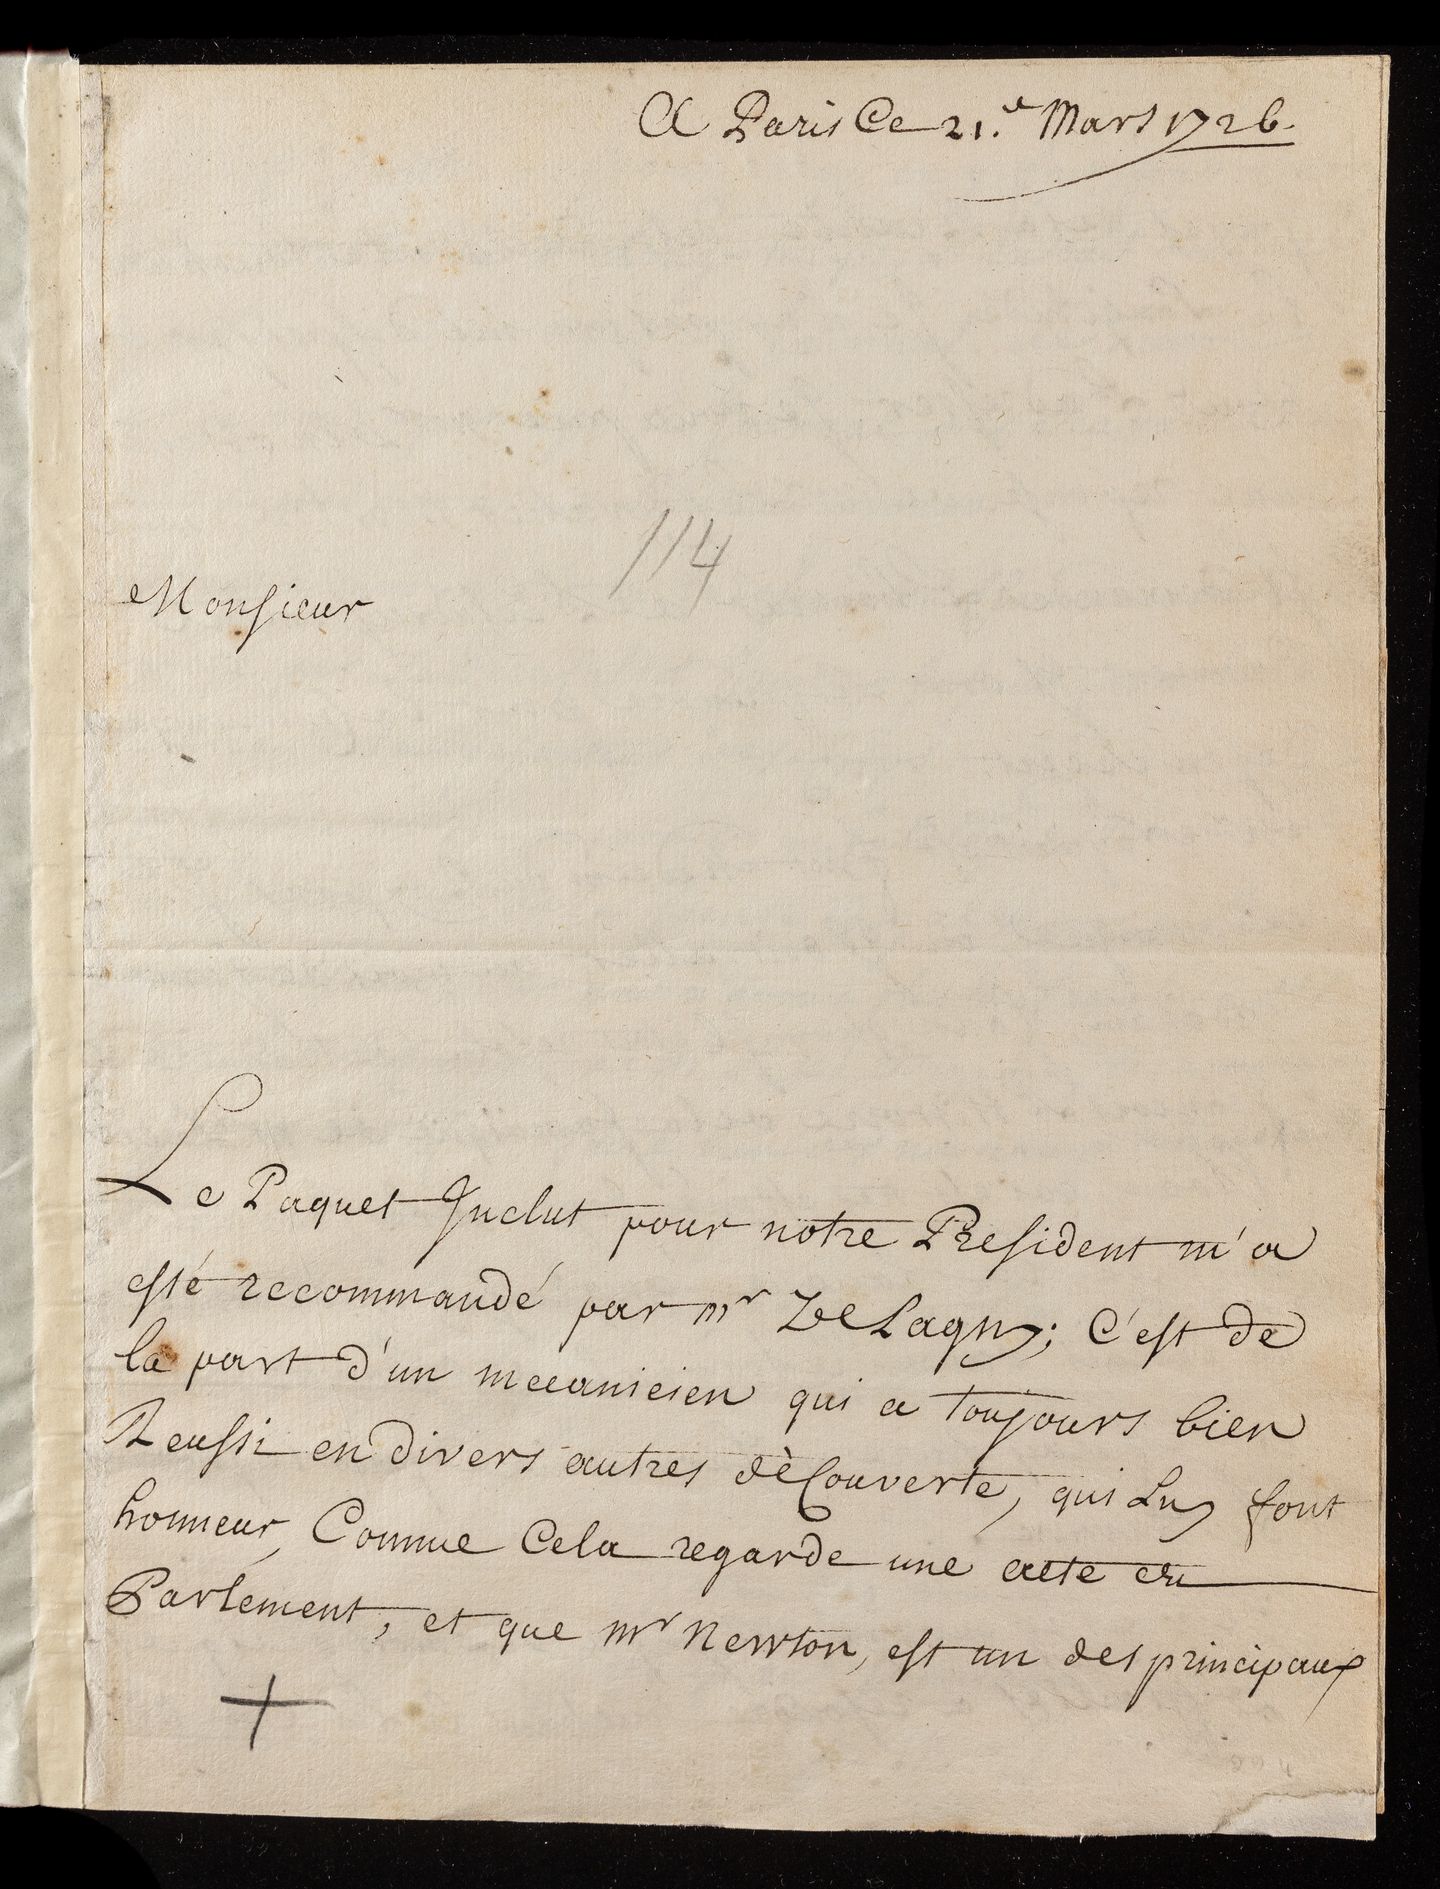 A Paris Ce 21.e Mars 1726.
114
Monsieur
Le Paquet Inclut pour notre President m'a
esté recommandé par mr De Lagny; C'est de
la part d'un mecanicien qui a toujours bien
Reussi en divers autres dècouverte, qui Luy font
honneur, Comme Cela regarde une acte du
Parlement, et que mr Newton, est un des principaux
+